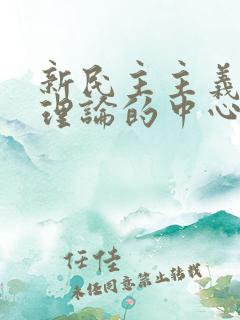 新民主主義
理論的中心
任佳
未经同意禁止转载